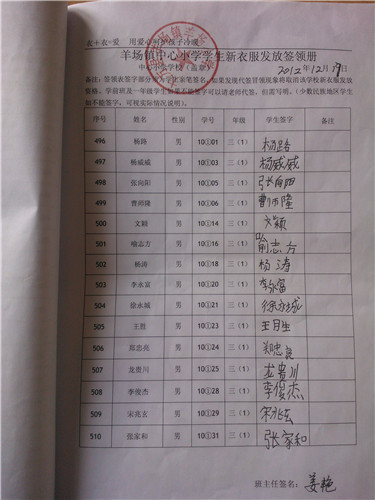 衣+衣>爱 用爱心呵护孩子冷暖
羊场镇中心小学学生新衣服发放签领册
中心小学学校（盖章） 2012年12月19日
备注：签领表签字部分 学生亲笔签名，如果发现代签冒领现象将取消该学校新衣服发放
资格。学前班及一年级学生如果不能签字可以请老师代签，但需写明。（少数民族地区学生
如不能签字，可视实际情况说明）。
序号 姓名 性别 学号 年级 学生签字 备注
496 杨路 男 10①01 三（1） 杨路
497 杨威威 男 10①03 三（1） 杨威威
498 张向阳 男 10①05 三（1） 张向阳
499 曹师隆 男 10①09 三（1） 曹师隆
500 文颖 男 10①14 三（1） 文颖
501 喻志方 男 10①16 三（1） 喻志方
502 杨涛 男 10①18 三（1） 杨涛
503 李永富 男 10①20 三（1） 李永富
504 徐永城 男 10①21 三（1） 徐永城
505 王胜 男 10①23 三（1） 王胜
506 郑忠亮 男 10①24 三（1） 郑忠亮
507 龙贵川 男 10①25 三（1） 龙贵川
508 李俊杰 男 10①28 三（1） 李俊杰
509 宋兆玄 男 10①29 三（1） 宋兆玄
510 张家和 男 10①31 三（1） 张家和
班主任签名： 姜艳